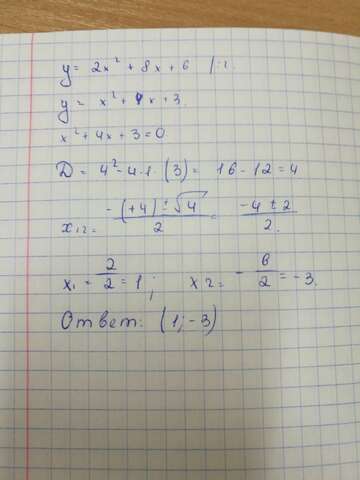 y = 2x² + 8x + 6 | :2.
y = x² + 4x + 3.
x² + 4x + 3 = 0
D = 4² - 4·1·(3) = 16 - 12 = 4
x₁₂ = -(+4) ± √4 / 2 = -4 ± 2 / 2.
x₁ = 2/2 = 1; x₂ = -6/2 = -3.
Ответ: (1; -3)